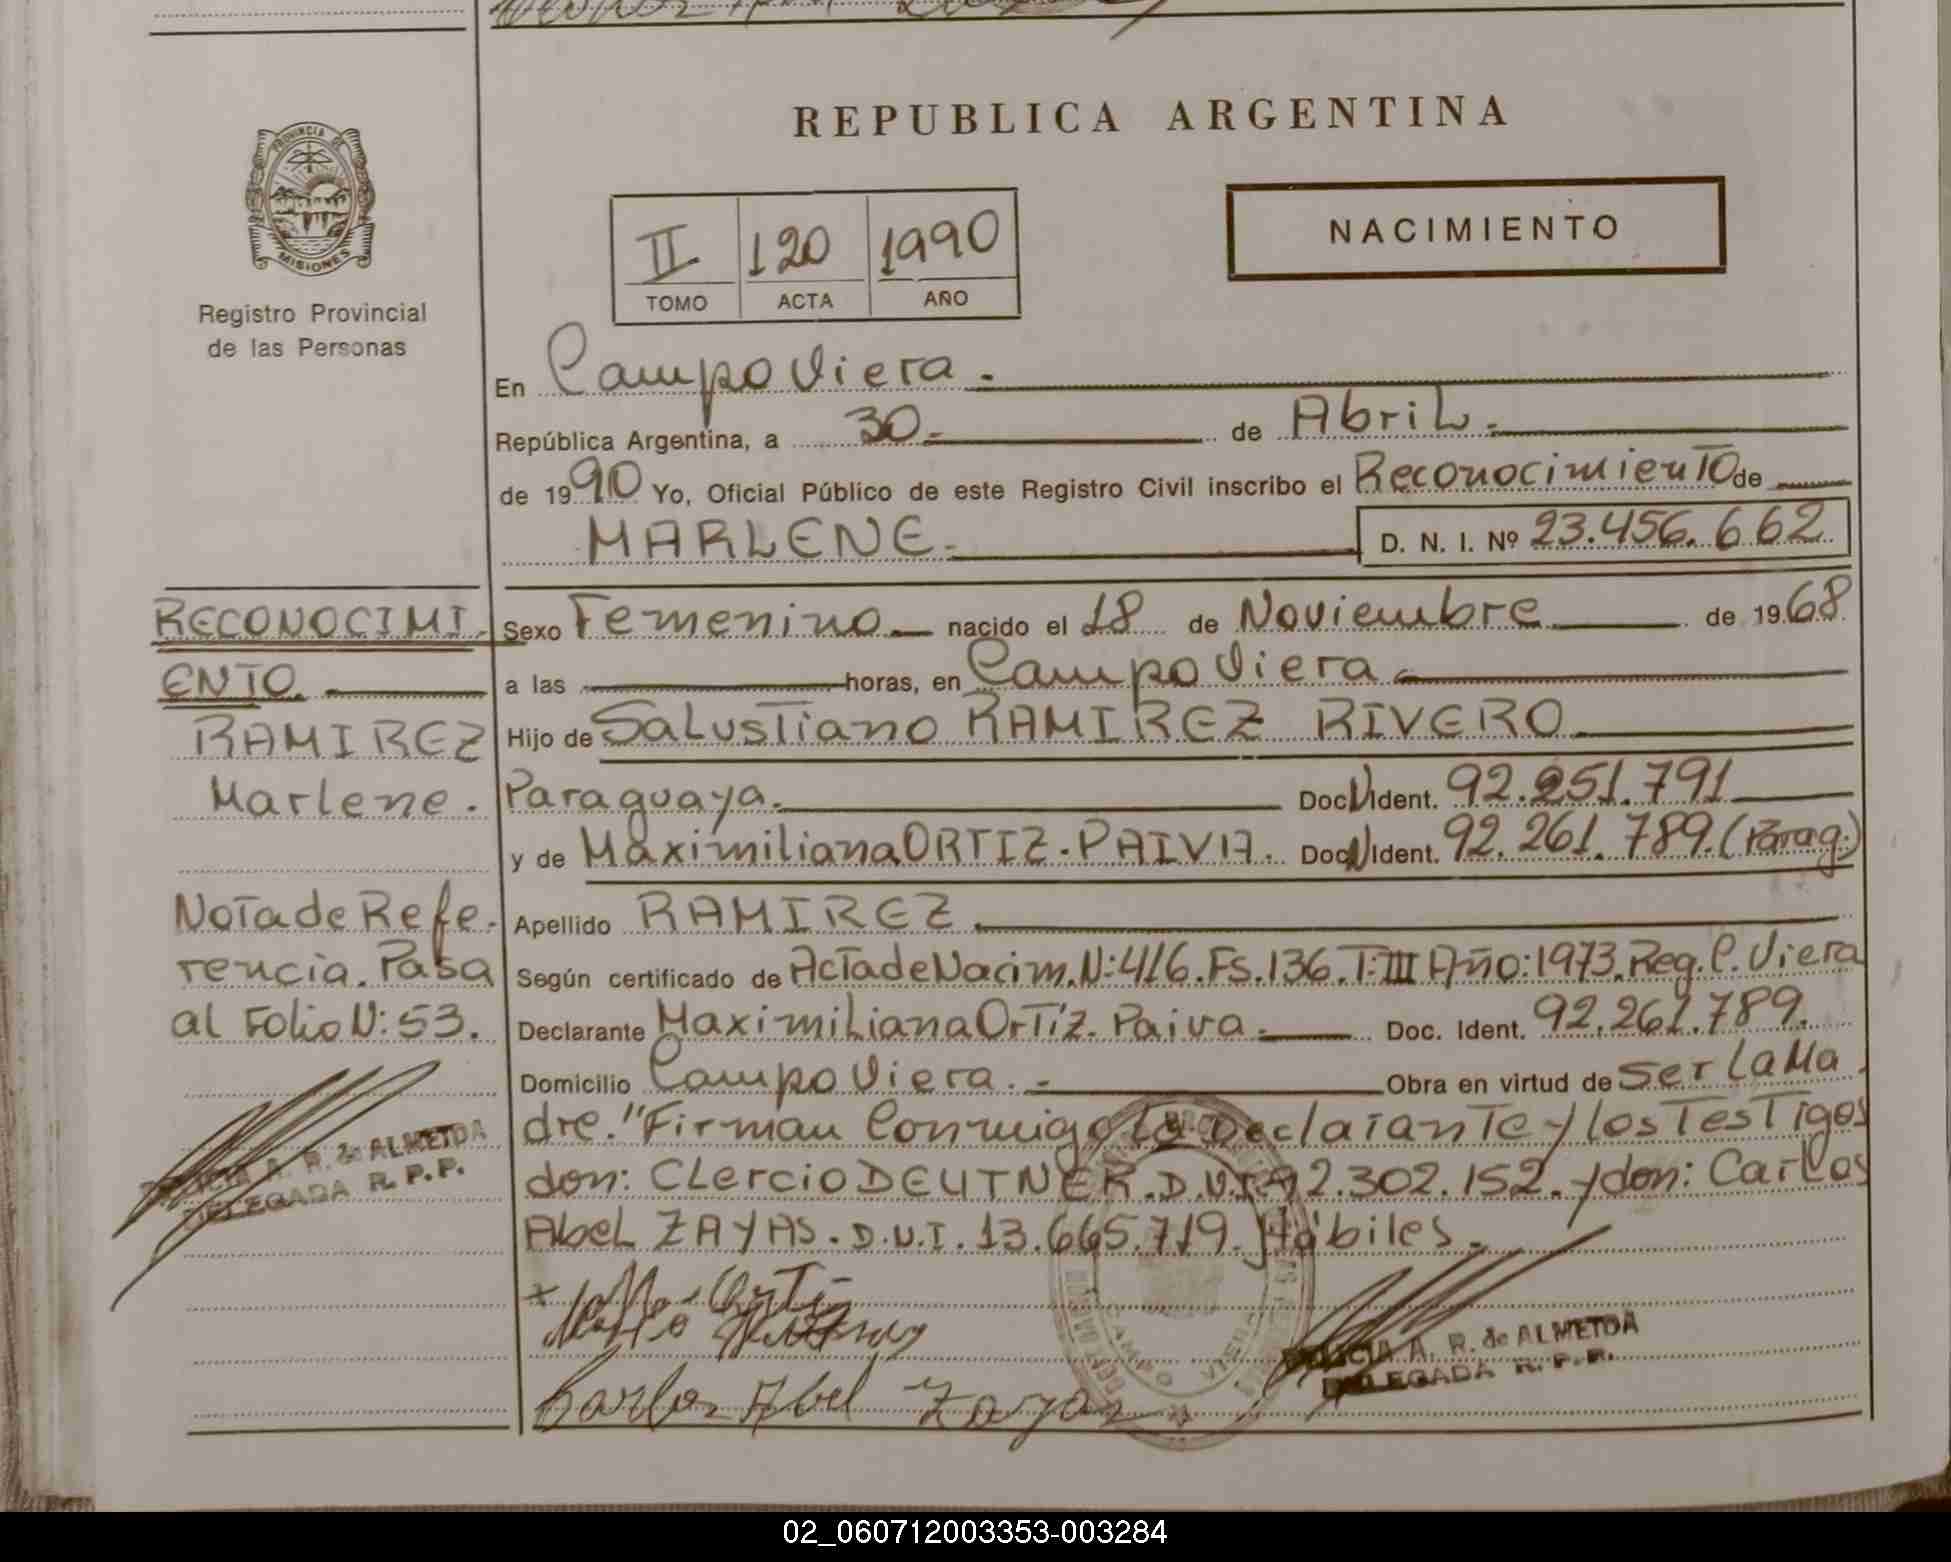 REPUBLICA ARGENTINA
PROVINCIA DE
MISIONES
Registro Provincial
de las Personas
II 120 1990
TOMO ACTA AÑO
NACIMIENTO
En Campo Viera.
República Argentina, a 30. de Abril.
de 1990 Yo, Oficial Público de este Registro Civil inscribo el Reconocimiento de
MARLENE. D. N. I. Nº 23.456.662
RECONOCIMI-
ENTO.
RAMIREZ
Marlene.
Nota de Refe-
rencia. Pasa
al Folio N: 53.
A. R. de ALMEIDA
DELEGADA R. P. P.
Sexo Femenino nacido el 18 de Noviembre de 1968.
a las horas, en Campo Viera.
Hijo de Salustiano RAMIREZ RIVERO
Paraguaya. Doc. Ident. 92.251.791
y de Maximiliana ORTIZ-PAIVA. Doc. Ident. 92.261.789. (Parag.)
Apellido RAMIREZ.
Según certificado de Acta de Nacim. N: 416. Fs. 136. T: III Año: 1973. Reg. C. Viera
Declarante Maximiliana Ortíz. Paiva. Doc. Ident. 92.261.789.
Domicilio Campo Viera. Obra en virtud de ser la Ma-
dre. "Firman conmigo la Declarante y los Testigos
don: Clercio DEUTNER. D.N.I. 92.302.152. y don: Carlos
Abel ZAYAS. D.N.I. 13.665.719. Hábiles.
Carlos Abel Zayas
CAMPO VIERA
A. R. de ALMEIDA
DELEGADA R. P. P.
02_060712003353-003284